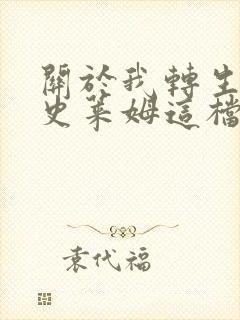 關於我轉生
史萊姆這檔
袁代福